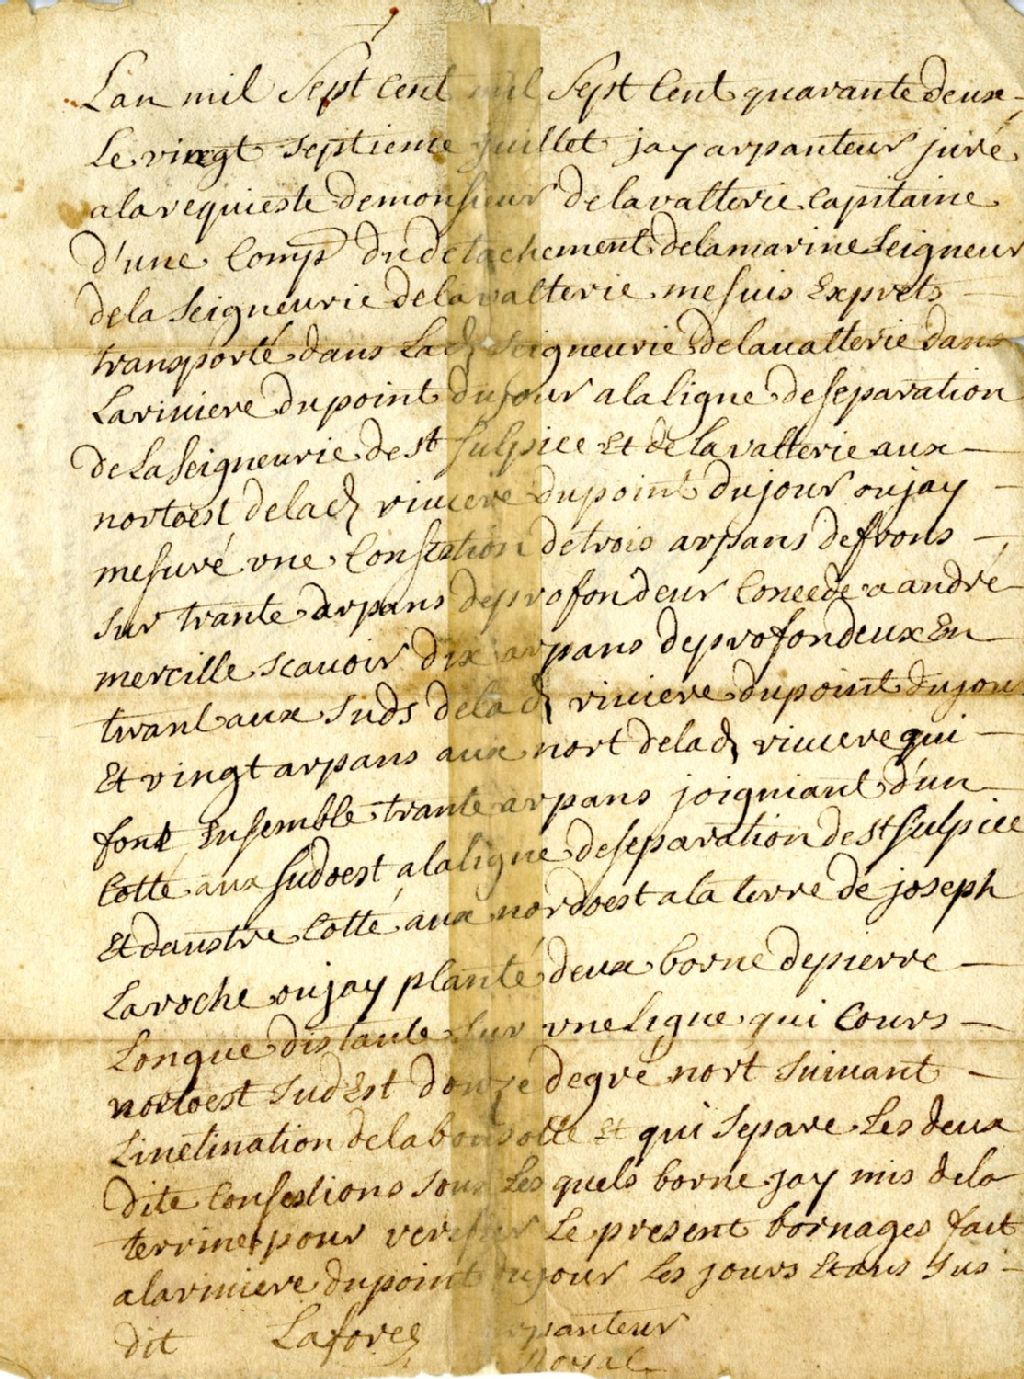 Lan mil Sept Cent mil Sept Cent quarante deux
Le vingt septieme juillet jay arpanteur juré
a la requieste de monsieur de lavalterie Capitaine
d'une Comp du detachement de la marine Seigneur
de la Seigneurie de lavalterie me suis Exprets
transporté dans La d Seigneurie de lavalterie dans
La riviere du point du jour a la ligne de separation
de La seigneurie de st sulpice Et de Lavalterie aux
nortoest de la d riviere du point du jour ou jay
mesuré vne Consestion de trois arpans de frons
sur trante arpans de profondeur Concede a andré
mercille scavoir dix arpans de profondeux En
tirant aux Suds de la d riviere du point du jour
Et vingt arpans aux nort de la d riviere qui
font Ensemble trante arpans joigniant d'un
Cotté aux sudoest a la ligne de separation de st sulpice
Et daustre Cotté aux nordoest a la terre de joseph
Laroche ou jay planté deux borne de pierre
Longue distante sur vne Ligne qui Cours
nortoest Sud Est douze degré nort suivant
Linclination de la boussolle Et qui Separe Les deux
dite Consestions Sous Les quels borne jay mis de la
terrine pour verifier Le present bornages fait
a la riviere du point du jour Les jours Et ans Sus
dit Laforet arpanteur
Royal